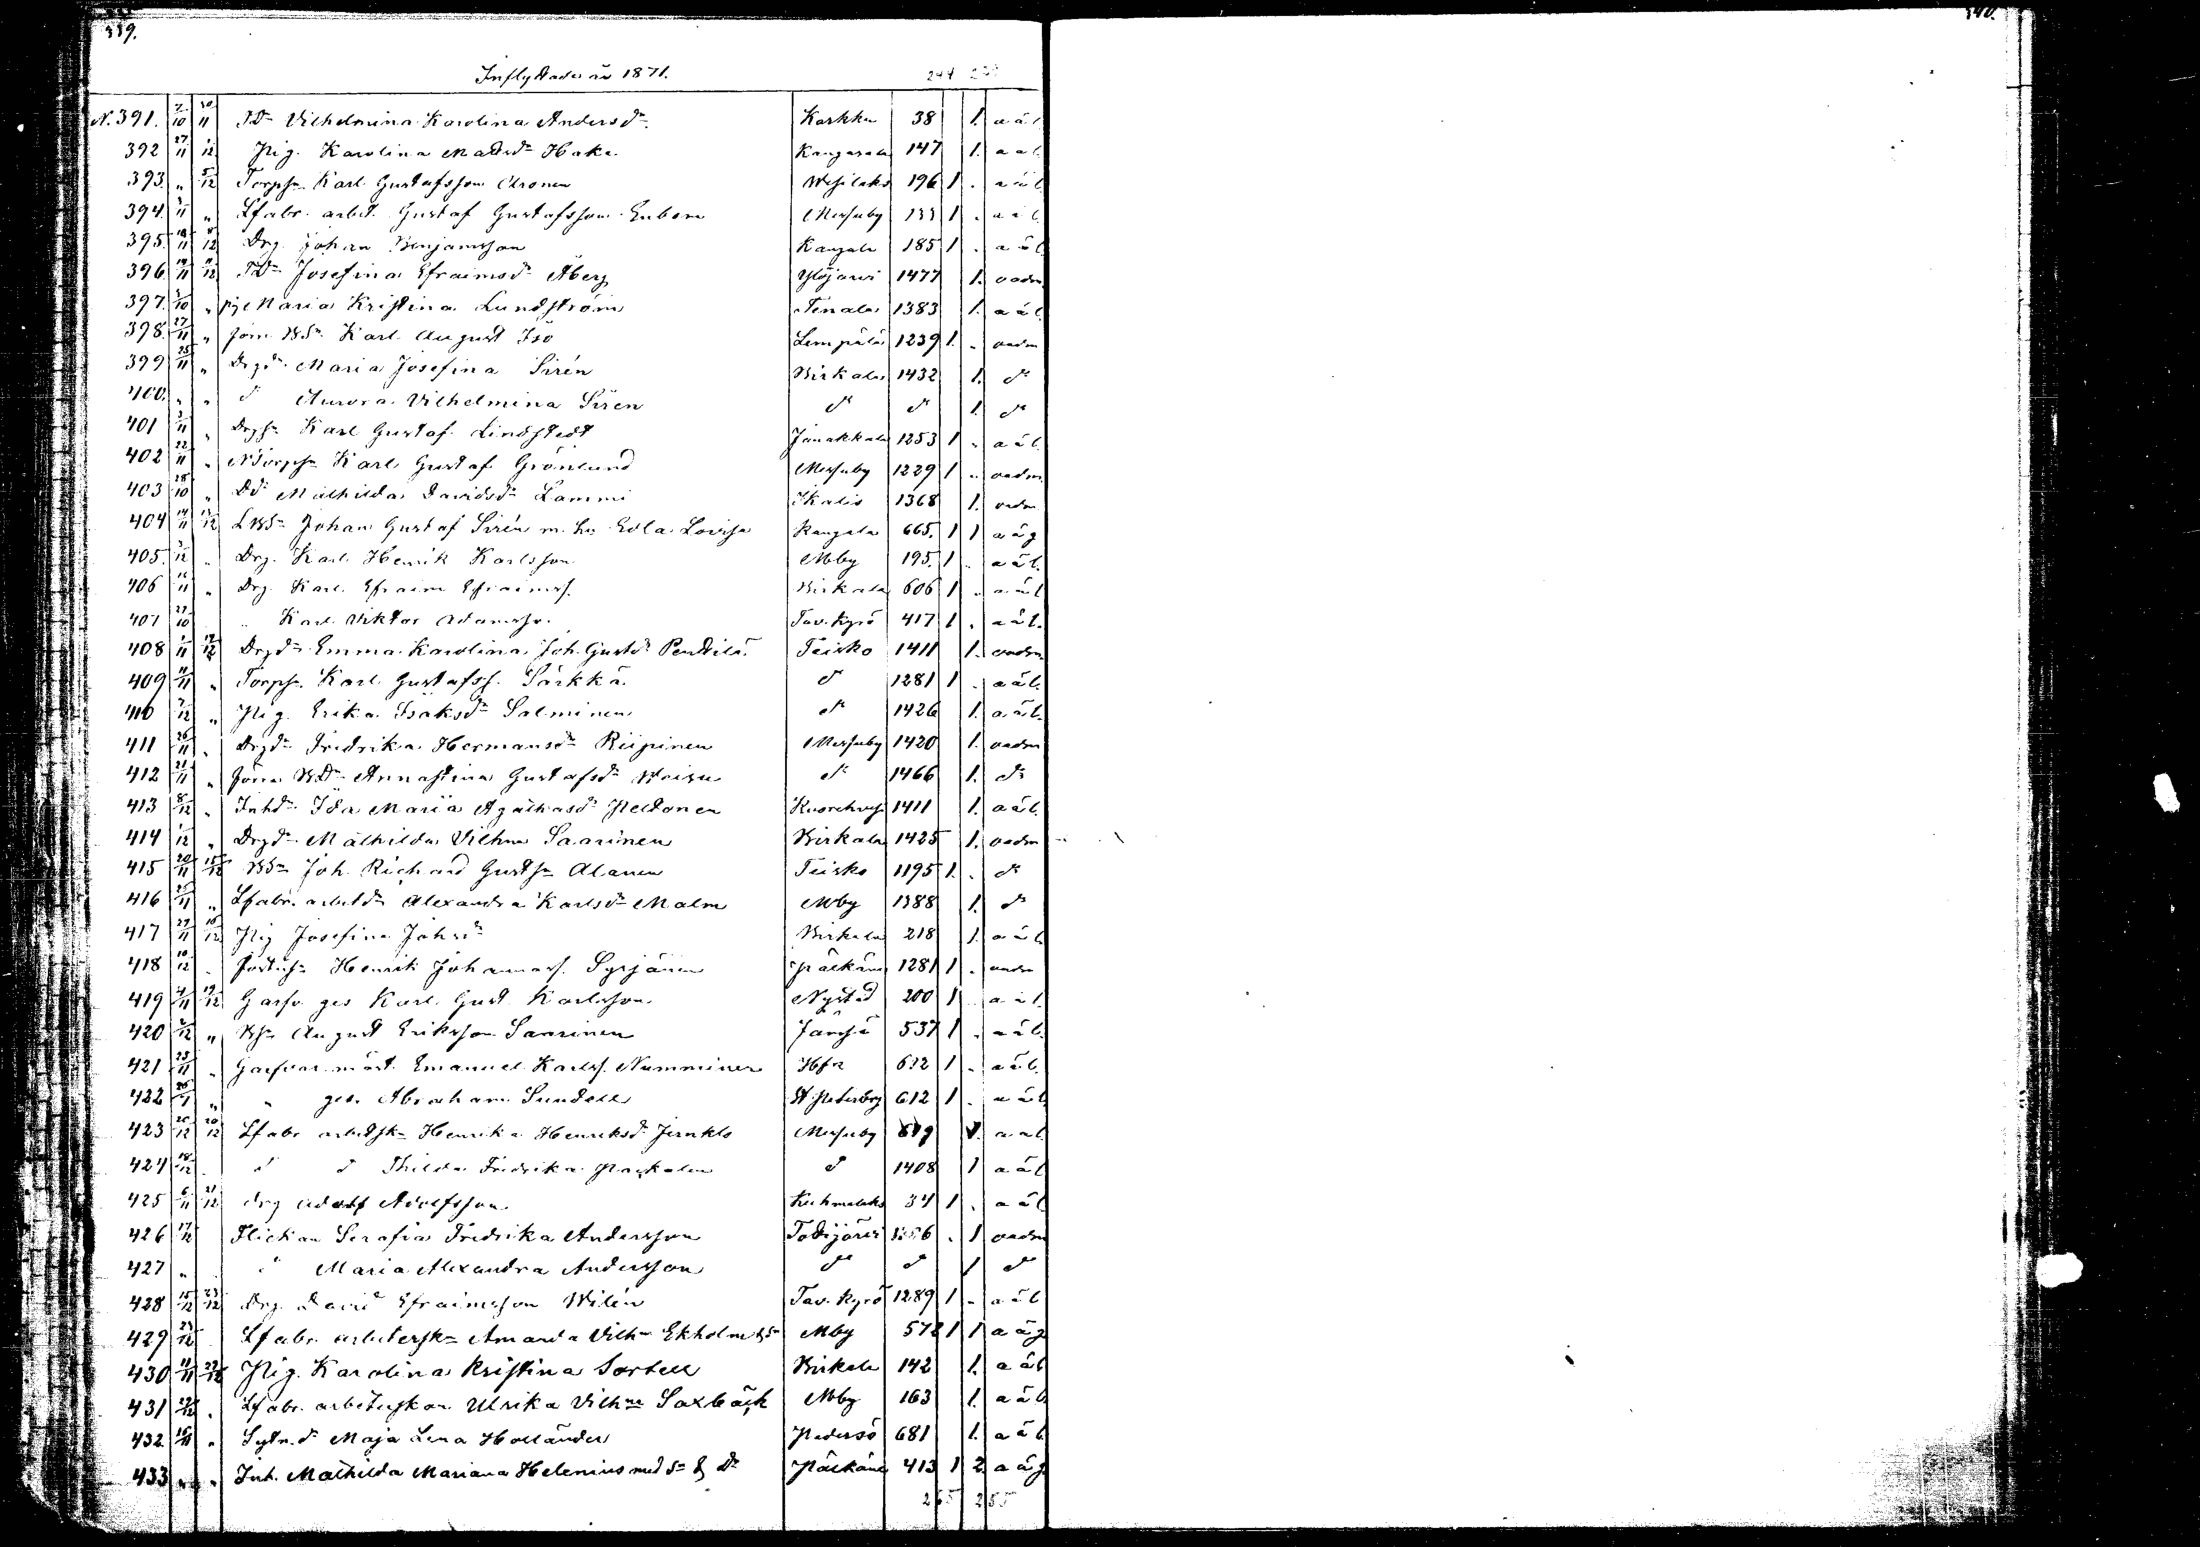 339.
340.
Inflyttade år 1871.
244
N. 391. 2/10 30/11 TDr Vilhelmina Karolina Andersdr Karkku 38 1. a ä l
392 27/11 1/12 Pig. Karolina Mattsdr Haka Kangasala 147 1. a ä l.
393. " 5/12 Torpsn Karl Gustafsson Aronen Wesilaks 196 1 . a ä l
394. /11 " Lfabr. arbet. Gustaf Gustafsson Enbom Messuby 133 1 . a ä l.
395. 18/11 8/12 Drg. Johan Benjamsson Kangala 185 1 . a ä l
396. 19/11 9/12 TDr Josefina Efraimsdr Åberg Ylöjärvi 1477 1. oadm.
397. /10 " pig Maria Kristina Lundström Tenala 1383 1. a ä l
398. 27/11 " Jom. BSn Karl August Iso Lempälä 1239 1. . oadm
399 25/11 " Drgdr Maria Josefina Sirén Birkala 1432 1. do
400. " " d Aurora Vilhelmina Siren do do 1. do
401 3/11 " Drgsn Karl Gustaf Lindstedt Janakkala 1253 1 . a ä l.
402 22/11 " NTorpsn Karl Gustaf Grönlund Messuby 1229 1 .. oadm.
403 28/10 " Ddr Mathilda Davidsdr Lammi Ikalis 1368 1. oadm
404 14/11 /12 LBSn Johan Gustaf Sirén m. hu Edla Lovisa Kangala 665. 1 1 a ä g
405. /12 " Drg. Karl Henrik Karlsson Mby 195. 1 . a ä l.
406 16/11 " Drg. Karl Efraim Efraimss. Birkala 606 1 . a ä l
407 27/10 " Karl Viktor Adamsson. Tav. Kyrö 417 1 . a ä l.
408 1/11 14/12 Drgdr Emma Karolina Joh. Gustdr Penttilä Teisko 1411 1. oadm.
409 11/11 " Torpsn. Karl Gustafss. Särkkä. d 1281 1 . a ä l.
410 7/12 " Pig. Erika Isaksdr Salminen do 1426 1. a ä l.
411 26/11 " Drgdr Fredrika Hermansdr Riipinen Messuby 1420 1. oadm
412 21/11 " Jorn BDr Annastina Gustafsdr Woisu do 1466 1. do
413 8/12 " Inhdr Ida Maria Agathasdr Peltonen Kuorehvesi 1411 1. a ä l.
414 1/12 " Drgdr Mathilda Vilhna Saarinen Birkala 1425 1. oadm
415 20/11 15/12 BSn Joh. Richard Gustsn Alanen Teisko 1195 1. . do
416 25/11 " Lfabr. arbetdr Alexandra Karlsdr Malm Mby 1388 1. do
417 27/11 16/12 Pig Josefina Johsdr Birkala 218 1. a ä l
418 10/12 . Henrik Johannss. Syrjänen Pälkäne 1281 1 . oadm
419 4/11 19/12 Garfv. ges Karl Gust. Karlsson Nystad 200 1 . a ä l.
420 2/12 " BSn August Eriksson Saarinen Jämsä 537 1 . a ä l.
421 23/11 " Garfvar. mäst. Emanuel Karlss. Numminen Hfrs 632 1 . a ä l.
422 26/11 " " ges. Abraham Sundell St Petersbrg 612 1 . a ä l
423 20/12 20/12 Lfabr arbetsk Henrika Henriksdr Messuby 1. a ä l
424 18/12 . d d Thilda Fredrika d 1408 1 a ä l
425 6/11 21/12 drg Adolf Adolfsson. Kuhmalaks 34 1 . a ä l
426 17/12 Flickan Serafia Fredrika Andersson Tottijärvi . 1 oadm
427 " " Maria Alexandra Andersson do do 1 do
428 15/12 23/12 Drg. David Efraimsson Wilén Tav. Kyrö 1289 1 . a ä l
429 23/12 Lfabr. arbetersk Amanda Vilhn Ekholm & Sn Mby 572 1 1 a ä g
430 11/11 29/12 Pig. Karolina Kristina Sortell Birkala 142 1. a ä l
431 29/12 . Lfabr. arbeterskan Ulrika Vilhna Saxbäck Mby 163 1. a ä l
432. 16/11 " Sytn.dr Maja Lena Holländer Pedersö 681 1. a ä l
433 " " Inh. Mathilda Mariana Helenius med Sn & Dr Pälkäne 413 1 2. a ä g.
265 255